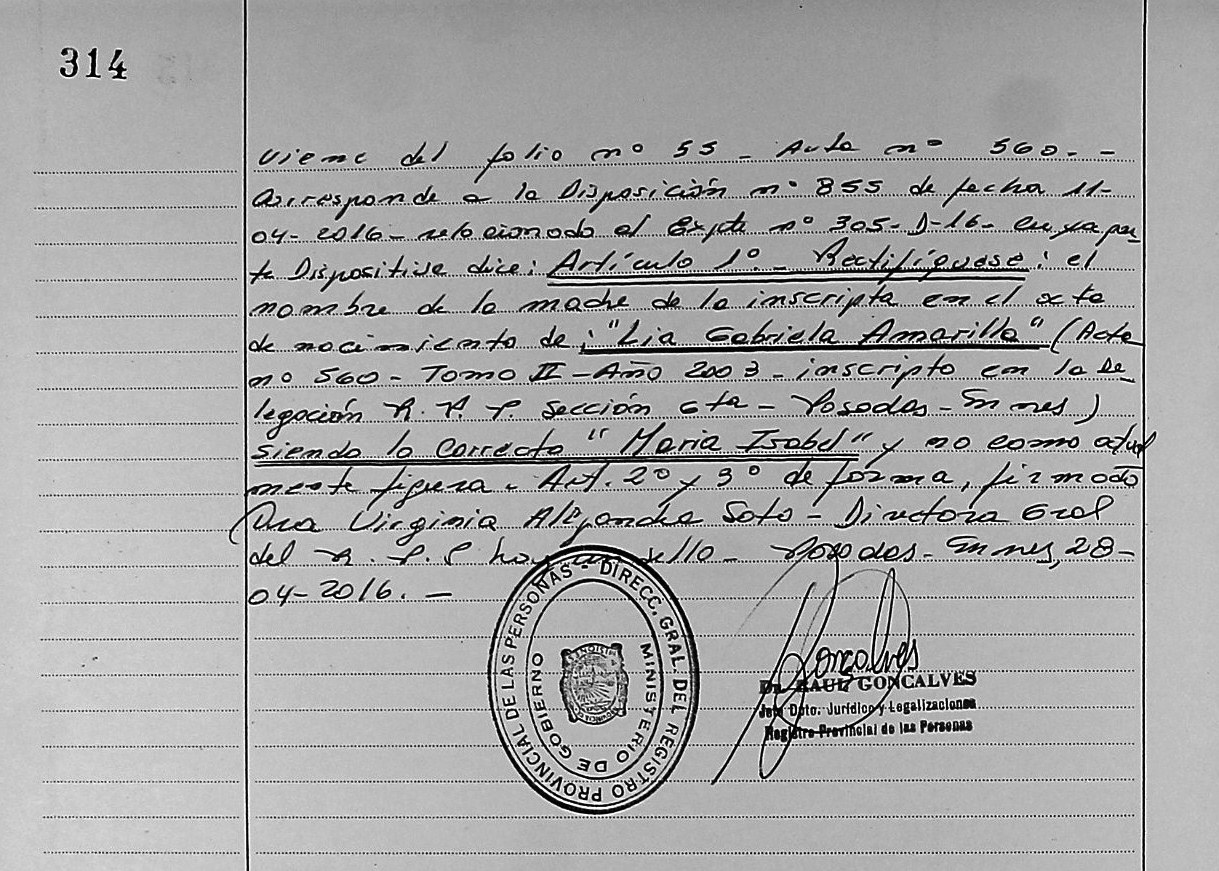 314
Viene del folio nº 55 - Acta nº 560. -
Corresponde a la Disposición nº 855 de fecha 11-
04-2016- relacionado al Expte nº 305-D-16- cuya par-
te Dispositiva dice: Artículo 1º - Rectifíquese: el
nombre de la madre de la inscripta en el acta
de nacimiento de: "Lia Gabriela Amarilla" (Acta
nº 560 - Tomo II - Año 2003 - inscripto en la De
legación R. P. P. Sección 6ta - Posadas - Mnes)
siendo lo correcto "Maria Isabel" y no como actual
mente figura. Art. 2º y 3º de forma, firmado
Dra Virginia Alejandra Soto - Directora Gral
del R. P. P hay un sello - Posadas - Mnes, 28-
04-2016. -
DIRECC. GRAL. DEL REGISTRO PROVINCIAL DE LAS PERSONAS -
MINISTERIO DE GOBIERNO
Goncalves
Dr. RAUL GONCALVES
Jefe Dpto. Jurídico y Legalizaciones
Registro Provincial de las Personas